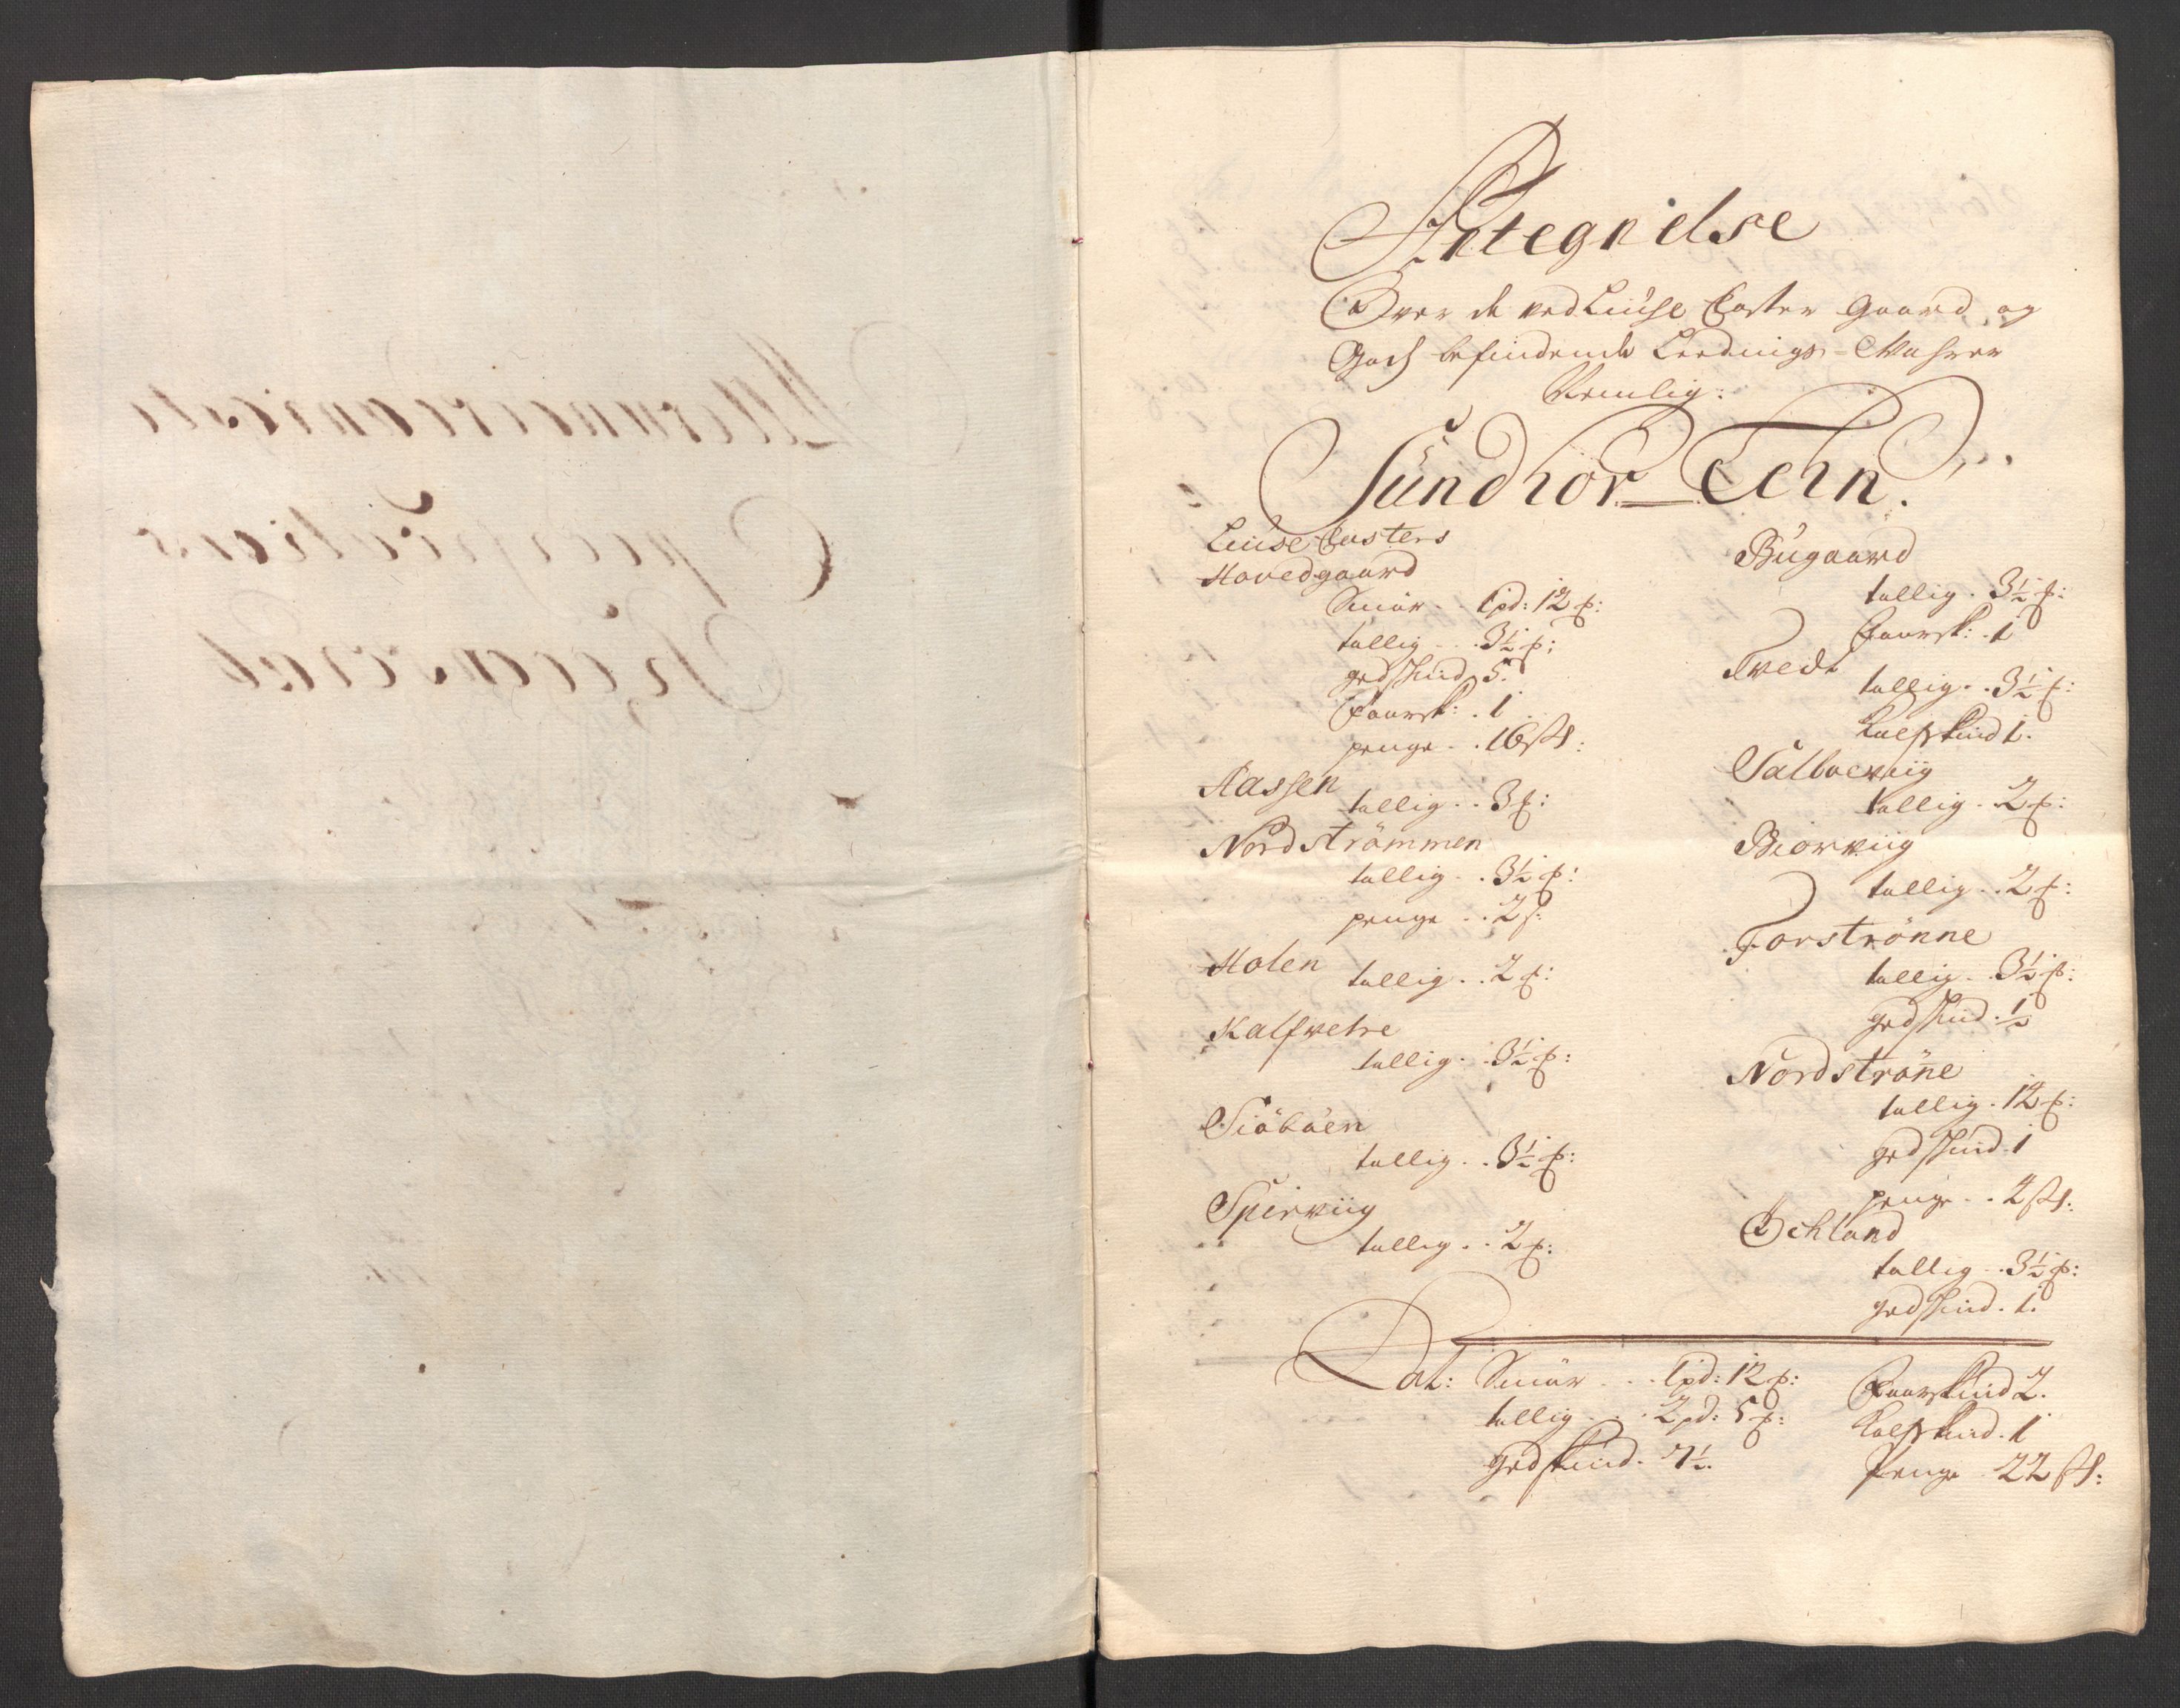 Antegnelse
Over de ved Liuse Closter Gaard og
Gods befindende Leedings-Wahrer
Nemlig:
Sundhor-Lehn.
Liuse Closters
Hovedgaard
Smör . . 1pd: 12 p:
tallig . . 3½ p:
gedskind 5.
Faarsk: . 1
penge . . 16 s:
Aassen
tallig . . 3 p:
Nordströmmen
tallig . . 3½ p:
penge . . 2 s:
Holen
tallig . . 2 p:
Kalfvetre
tallig . . 3½ p:
Siöböen
tallig . . 3½ p:
Speirviig
tallig . . 2 p:
Bugaard
tallig . 3½ p:
Faarsk: . 1
Tvedt
tallig . . 3½ p:
Kalfskind 1.
Salboeviig
tallig . 2 p:
Biorviig
tallig . . 2 p:
Forströnne
tallig . . 3½ p:
gedskind . ½
Nordströne
tallig . 12 p:
gedskind . 1
penge . . 4 s:
Echland
tallig . . 3½ p:
gedskind . 1.
Lat: Smör . . . 1pd: 12 p:
tallig . . . 2pd: 5 p:
gedskind . 7½.
Faarskind 2.
Kalfskind . 1
Penge 22 s: